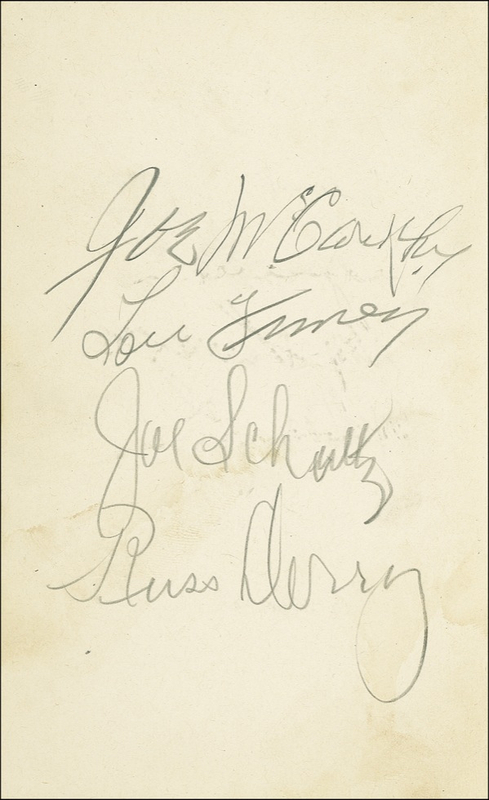 Joe McCarthy
Lou Finney
Joe Schultz
Russ Derry